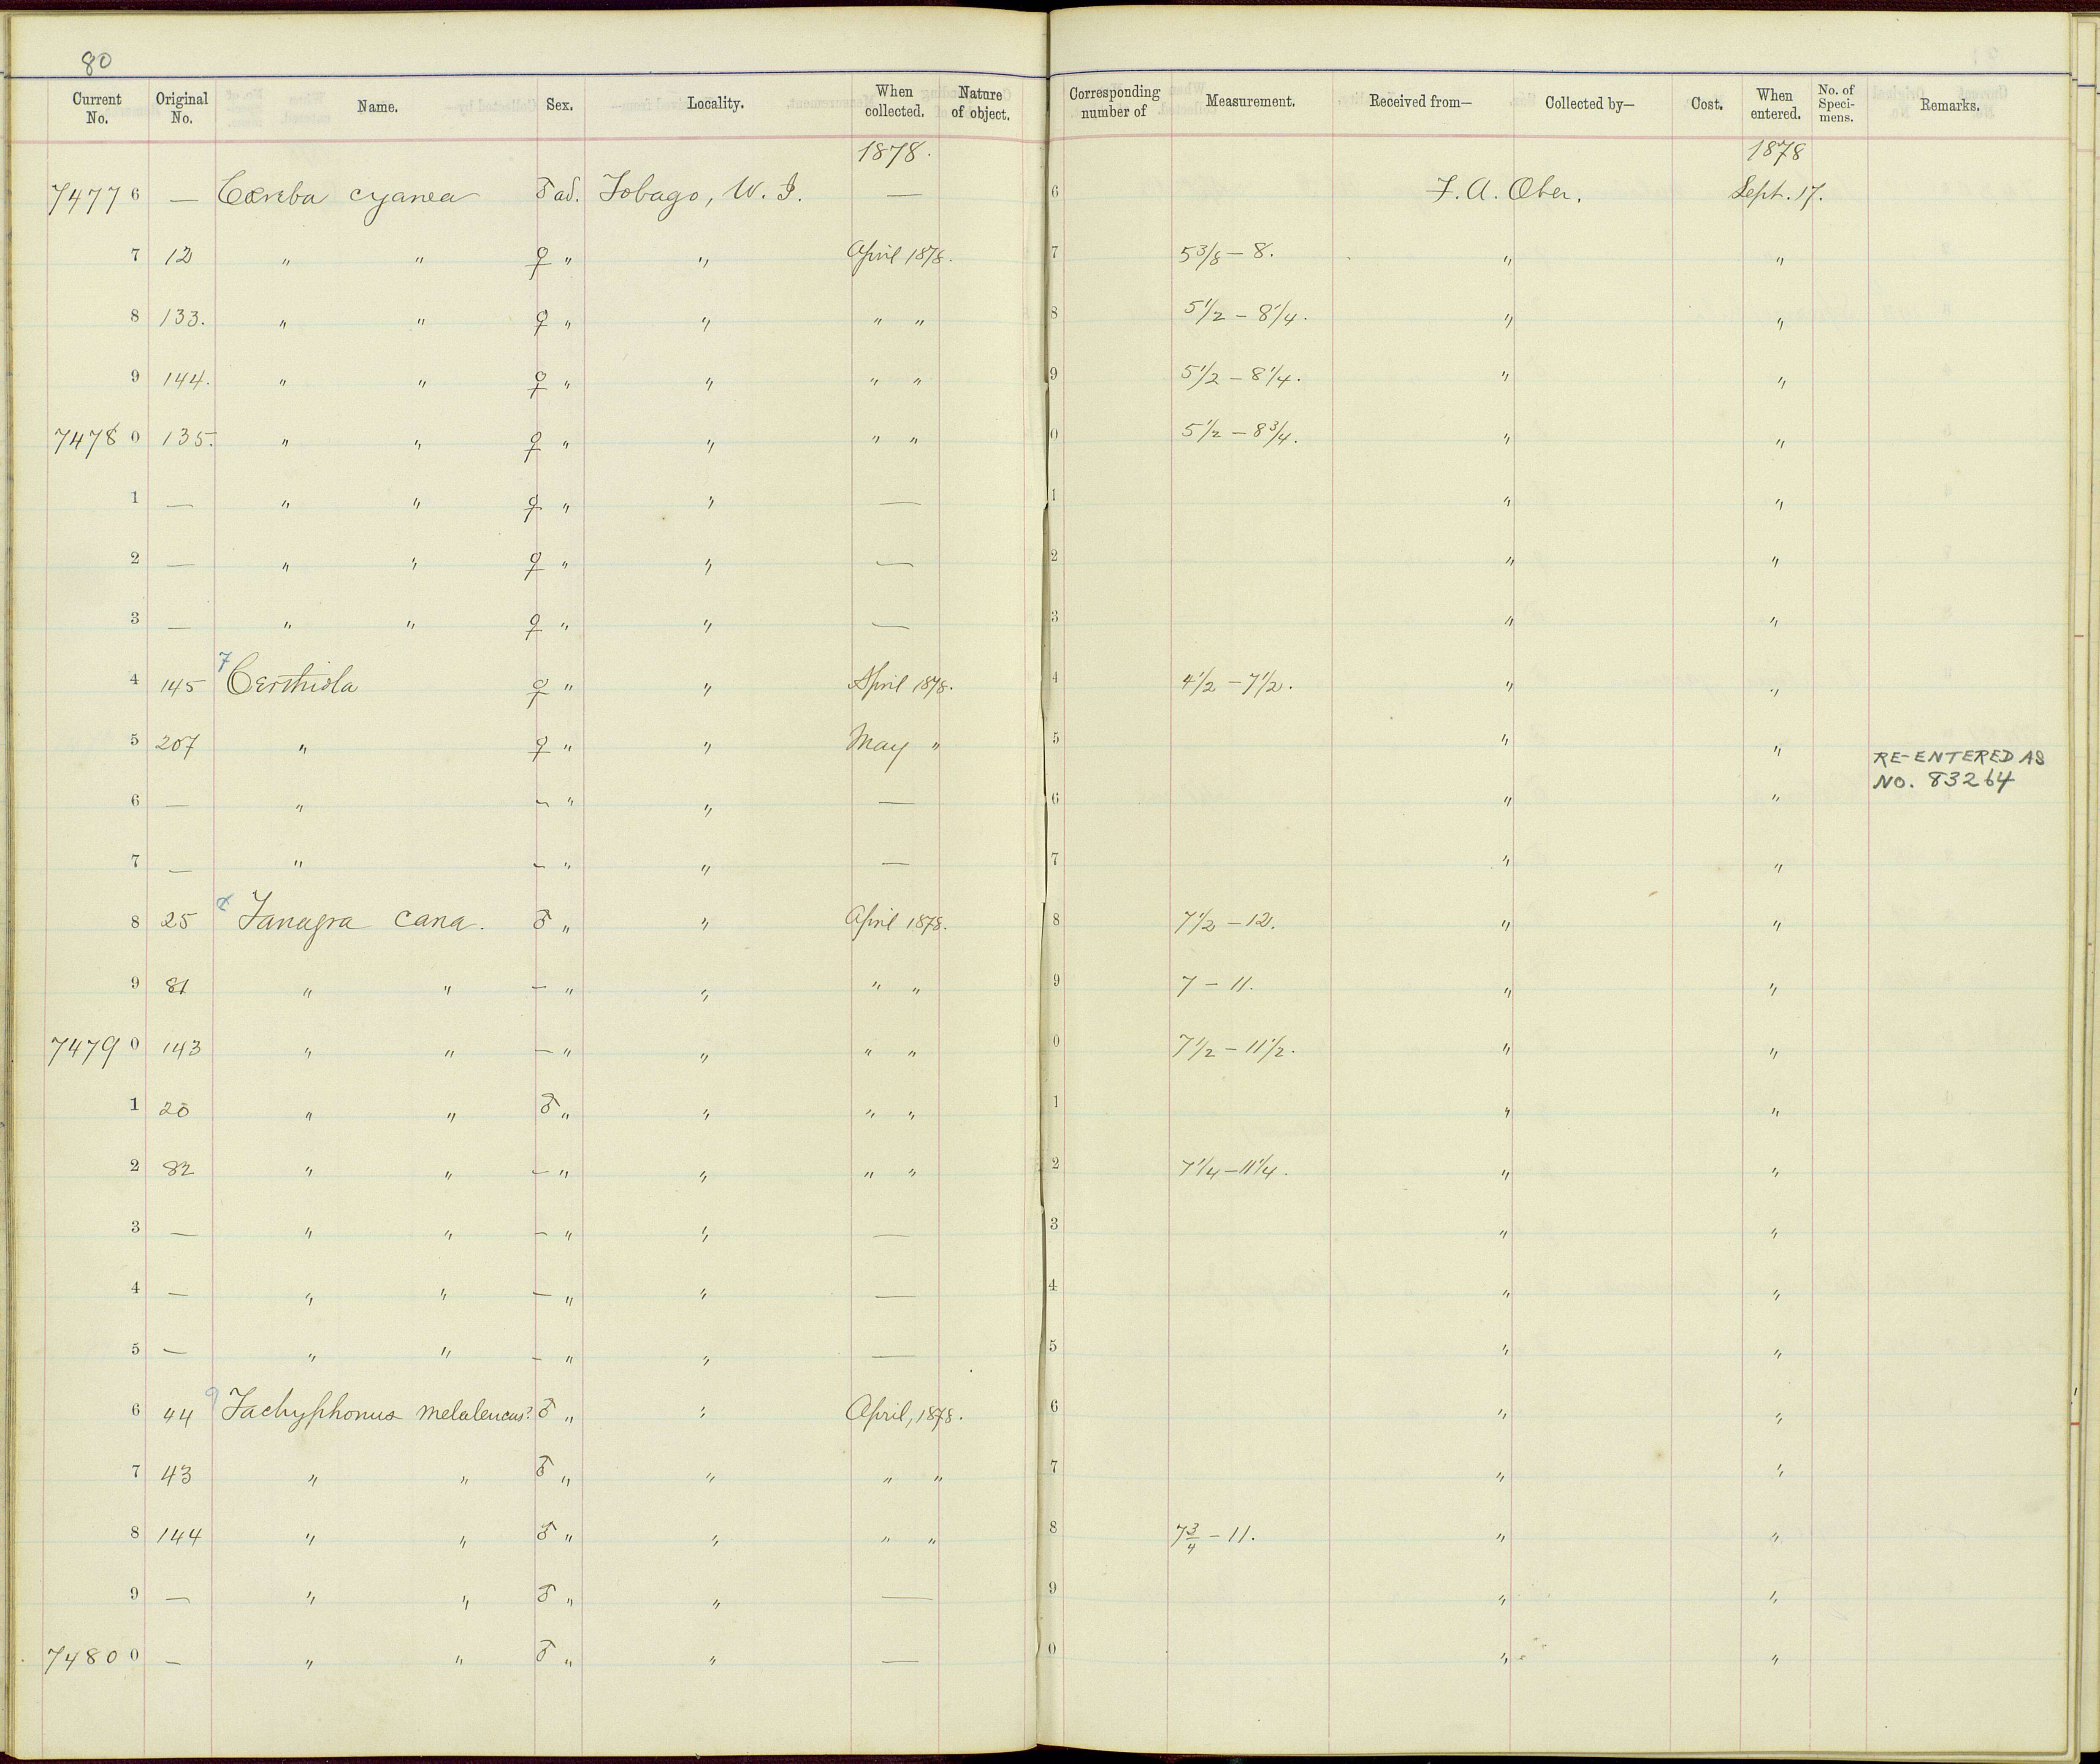 80
Current No. Original No. Name. Sex. Locality. When collected. Nature of object. Corresponding number of Measurement. Received from— Collected by— Cost. When entered. No. of Speci-mens. Remarks.
1878. 1878
7477 6 — Cœreba cyanea ♂ ad. Tobago, W. I. — 6 F. A. Ober. Sept. 17.
7 12 " " ♀ " " April 1878. 7 5 3/8 — 8. " "
8 133. " " ♀ " " " " 8 5 1/2 — 8 1/4. " "
9 144. " " ♀ " " " " 9 5 1/2 — 8 1/4. " "
7478 0 135. " " ♀ " " " " 0 5 1/2 — 8 3/4. " "
1 — " " ♀ " " — 1 " "
2 — " " ♀ " " — 2 " "
3 — " " ♀ " " — 3 " "
4 145 7 Certhiola ♀ " " April 1878. 4 4 1/2 — 7 1/2. " "
5 207 " ♀ " " May " 5 " " RE-ENTERED AS
NO. 83264
6 — " – " " — 6 " "
7 — " – " " — 7 " "
8 25 Tanagra cana. ♂ " " April 1878. 8 7 1/2 — 12. " "
9 81 " " – " " " " 9 7 — 11. " "
7479 0 143 " " – " " " " 0 7 1/2 — 11 1/2. " "
1 20 " " ♂ " " " " 1 " "
2 82 " " – " " " " 2 7 1/4 — 11 1/4. " "
3 — " " – " " — 3 " "
4 — " " – " " — 4 " "
5 — " " – " " — 5 " "
6 44 9 Tachyphonus melaleucus? ♂ " " April, 1878. 6 " "
7 43 " " ♂ " " " " 7 " "
8 144 " " ♂ " " " " 8 7 3/4 — 11. " "
9 — " " ♂ " " — 9 " "
7480 0 — " " ♂ " " — 0 " "